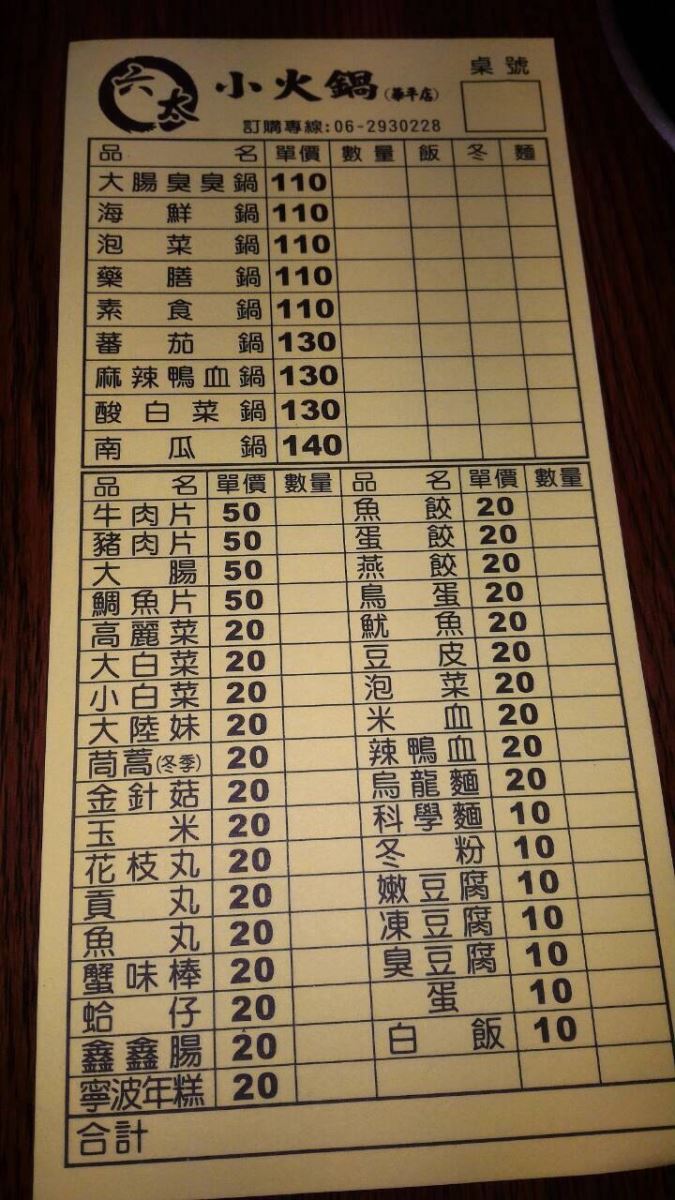 六太 小火鍋(華平店) 桌號
訂購專線:06-2930228
品名 單價 數量 飯 冬 麵
大腸臭臭鍋 110
海鮮鍋 110
泡菜鍋 110
藥膳鍋 110
素食鍋 110
蕃茄鍋 130
麻辣鴨血鍋 130
酸白菜鍋 130
南瓜鍋 140
品名 單價 數量 品名 單價 數量
牛肉片 50 魚餃 20
豬肉片 50 蛋餃 20
大腸 50 燕餃 20
鯛魚片 50 鳥蛋 20
高麗菜 20 魷魚 20
大白菜 20 豆皮 20
小白菜 20 泡菜 20
大陸妹 20 米血 20
茼蒿(冬季) 20 辣鴨血 20
金針菇 20 烏龍麵 20
玉米 20 科學麵 10
花枝丸 20 冬粉 10
貢丸 20 嫩豆腐 10
魚丸 20 凍豆腐 10
蟹味棒 20 臭豆腐 10
蛤仔 20 蛋 10
鑫鑫腸 20 白飯 10
寧波年糕 20
合計